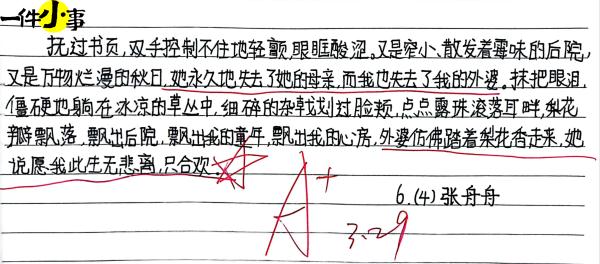 一件小事
抚过书页,双手控制不住地轻颤,眼眶酸涩。又是窄小、散发着霉味的后院,
又是万物烂漫的秋日,她永久地失去了她的母亲,而我也失去了我的外婆。抹把眼泪,
僵硬地躺在冰凉的草丛中,细碎的杂草划过脸颊,点点露珠滚落耳畔,梨花
瓣飘落,飘出后院,飘出我的童年,飘出我的心房,外婆仿佛踏着梨花香走来,她
说愿我此生无悲离,只合欢。
A+
6.(4)张舟舟
3.29